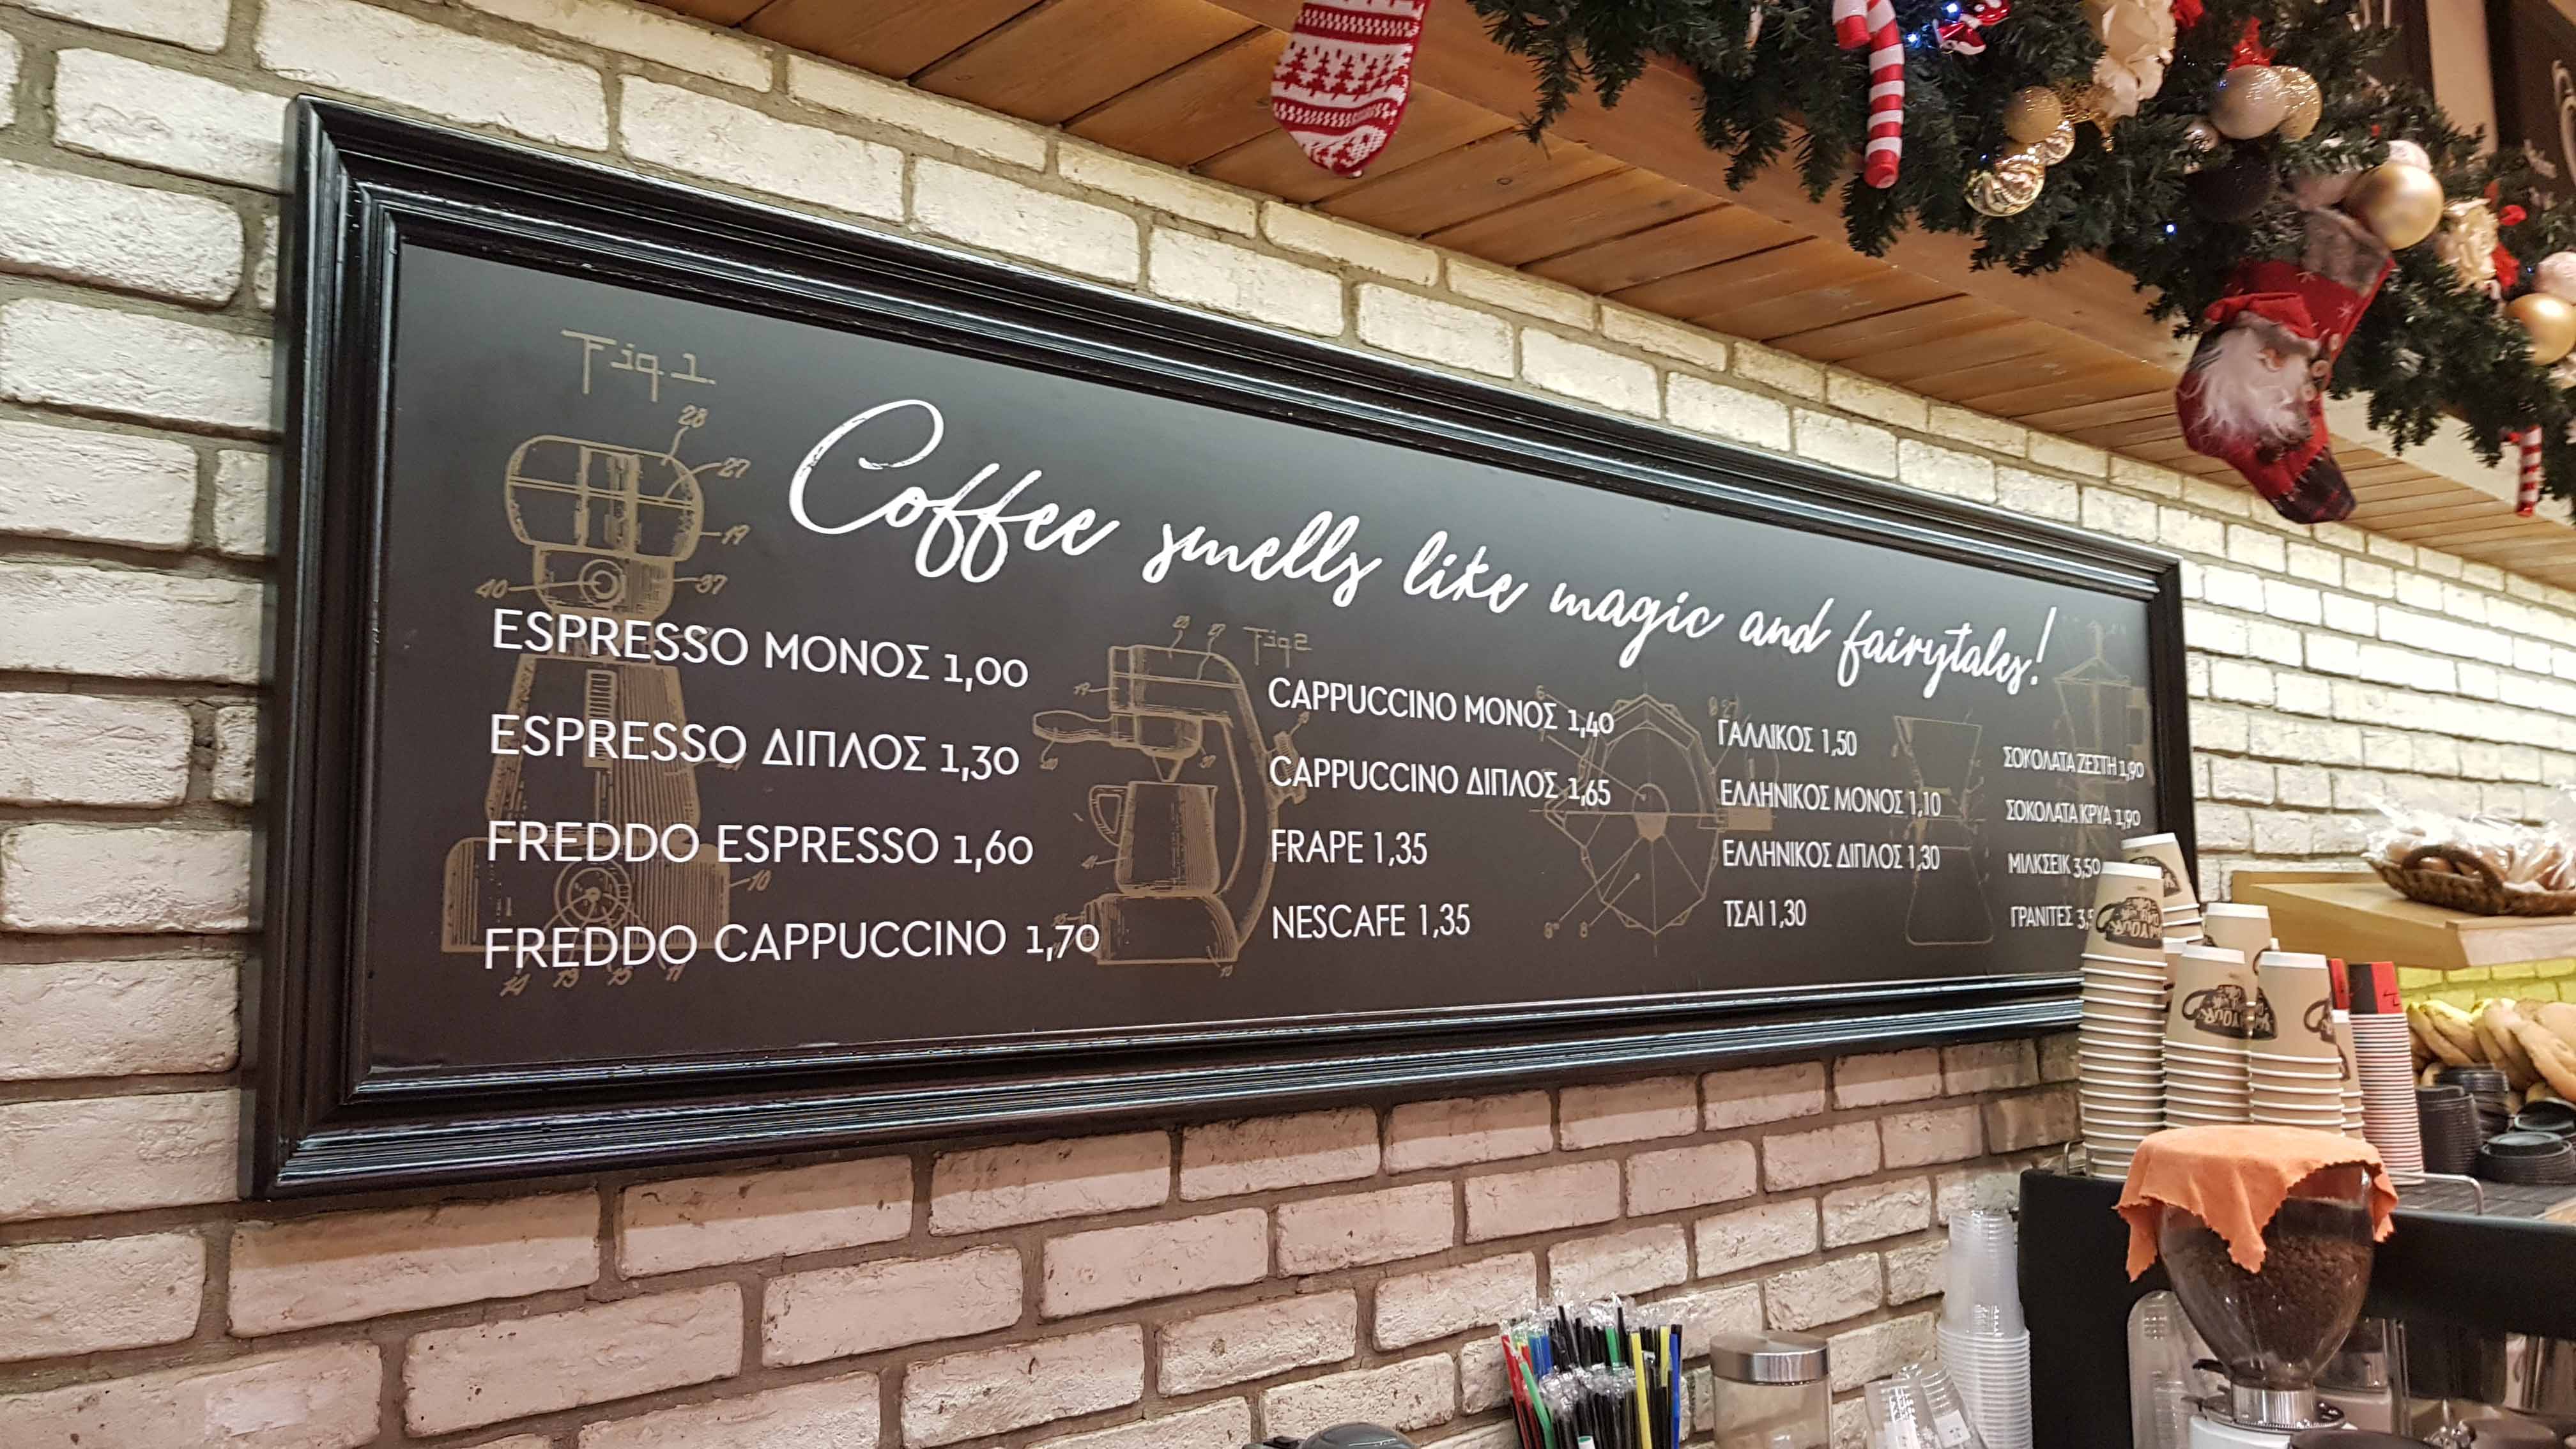 Fig.1
28
27
19
40
37
Coffee smells like magic and fairytales!
ESPRESSO ΜΟΝΟΣ 1,00
ESPRESSO ΔΙΠΛΟΣ 1,30
FREDDO ESPRESSO 1,60
FREDDO CAPPUCCINO 1,70
10
14 13 15 11
Fig2
19
CAPPUCCINO ΜΟΝΟΣ 1,40
CAPPUCCINO ΔΙΠΛΟΣ 1,65
FRAPE 1,35
NESCAFE 1,35
ΓΑΛΛΙΚΟΣ 1,50
ΕΛΛΗΝΙΚΟΣ ΜΟΝΟΣ 1,10
ΕΛΛΗΝΙΚΟΣ ΔΙΠΛΟΣ 1,30
ΤΣΑΙ 1,30
ΣΟΚΟΛΑΤΑ ΖΕΣΤΗ 1,90
ΣΟΚΟΛΑΤΑ ΚΡΥΑ 1,90
ΜΙΛΚΣΕΙΚ 3,50
ΓΡΑΝΙΤΕΣ